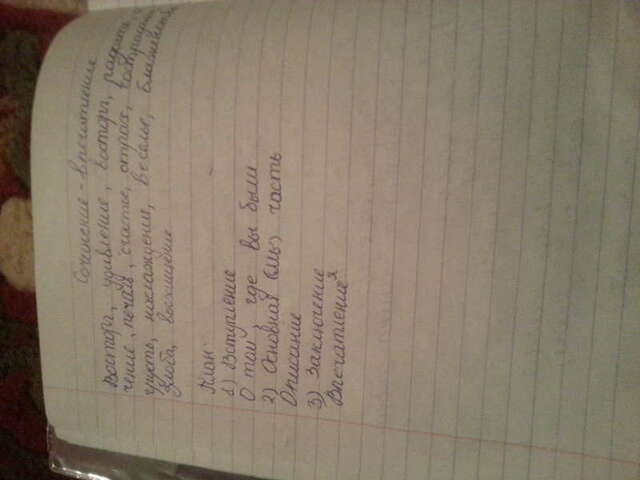 Сочинение - впечатление
Восторг, удивление, восторг, радость,
чение, печаль, счастие, страх, восхищение
грусть, наслаждение, веселье, блаженство
Злоба, волшебие
План:
1) Вступление
О том, где вы были
2) Основная часть
Описание
3) Заключение
Впечатления